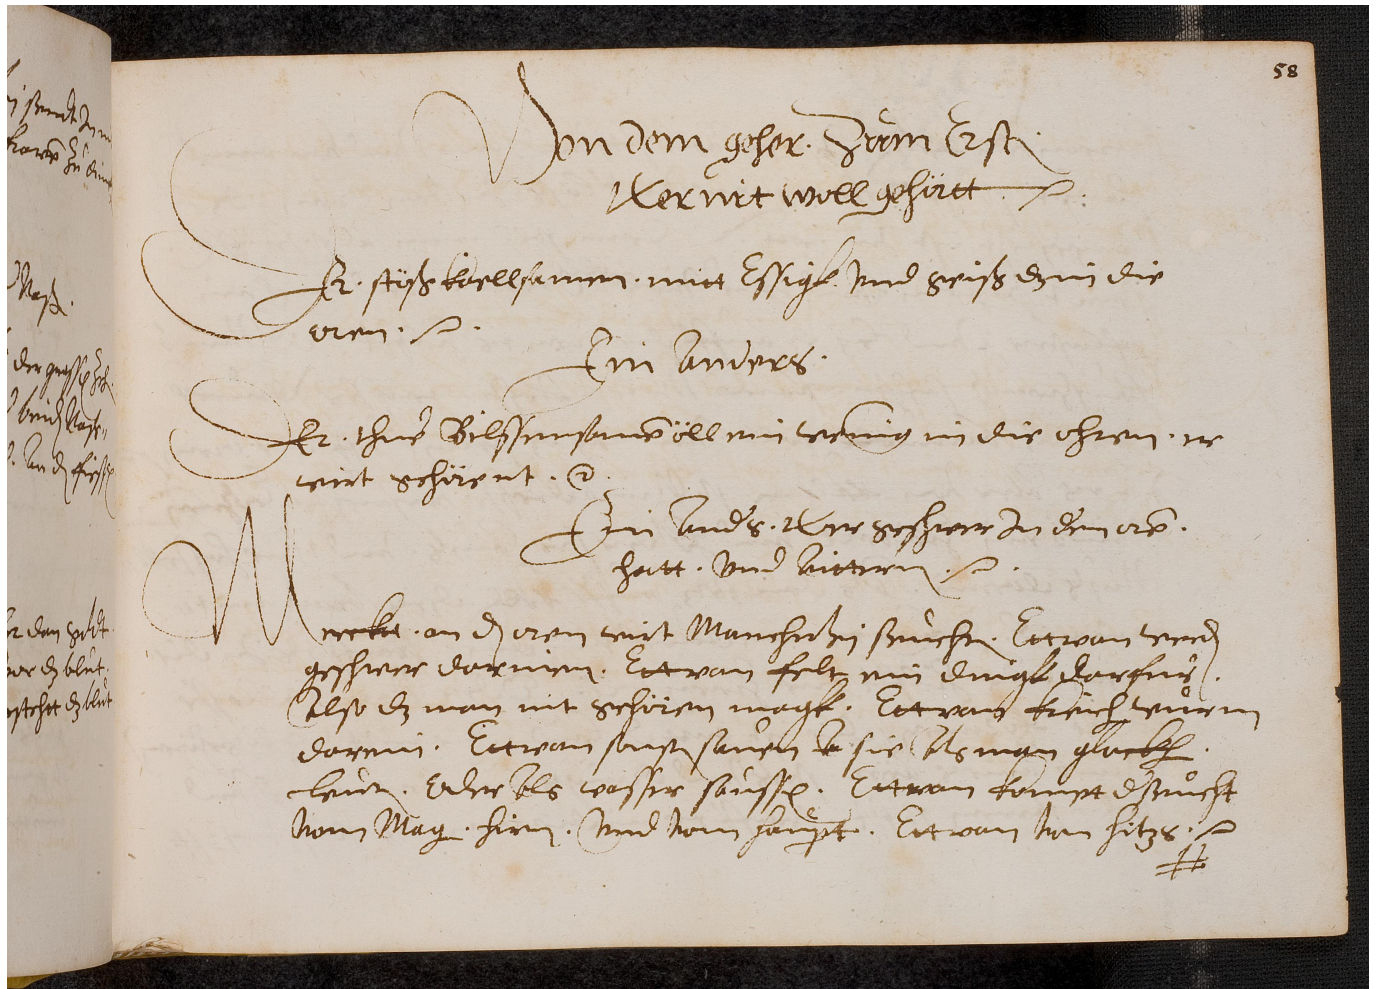 58
Von dem geher. Zum Ersten
Wer nit woll gehört
Er. stoß koellsamen. mit Essigk. Vnd geiß dz in die
oren.
Ein Anders.
Er. thue Bilssensamen öll ein wenig in die ohren. er
wirt gehörent.
Ein Anders. Wer geschwer In den oren.
hatt. Vnd Aittern.
Merckt. an den oren wirt Mancherlej seuchen. Ettwan werden
geschwer darinnen. Ettwan felt ein dingk darfur.
Also dz man nit gehören magk. Ettwan kreuch wurm
darein. Ettwan sausen sie Als man glocken
leut. Oder Als wasser saussen. Ettwan kompt d seucht
Vom Mag. hirn. Vnd Vom haupt. Ettwan Von hitzs.